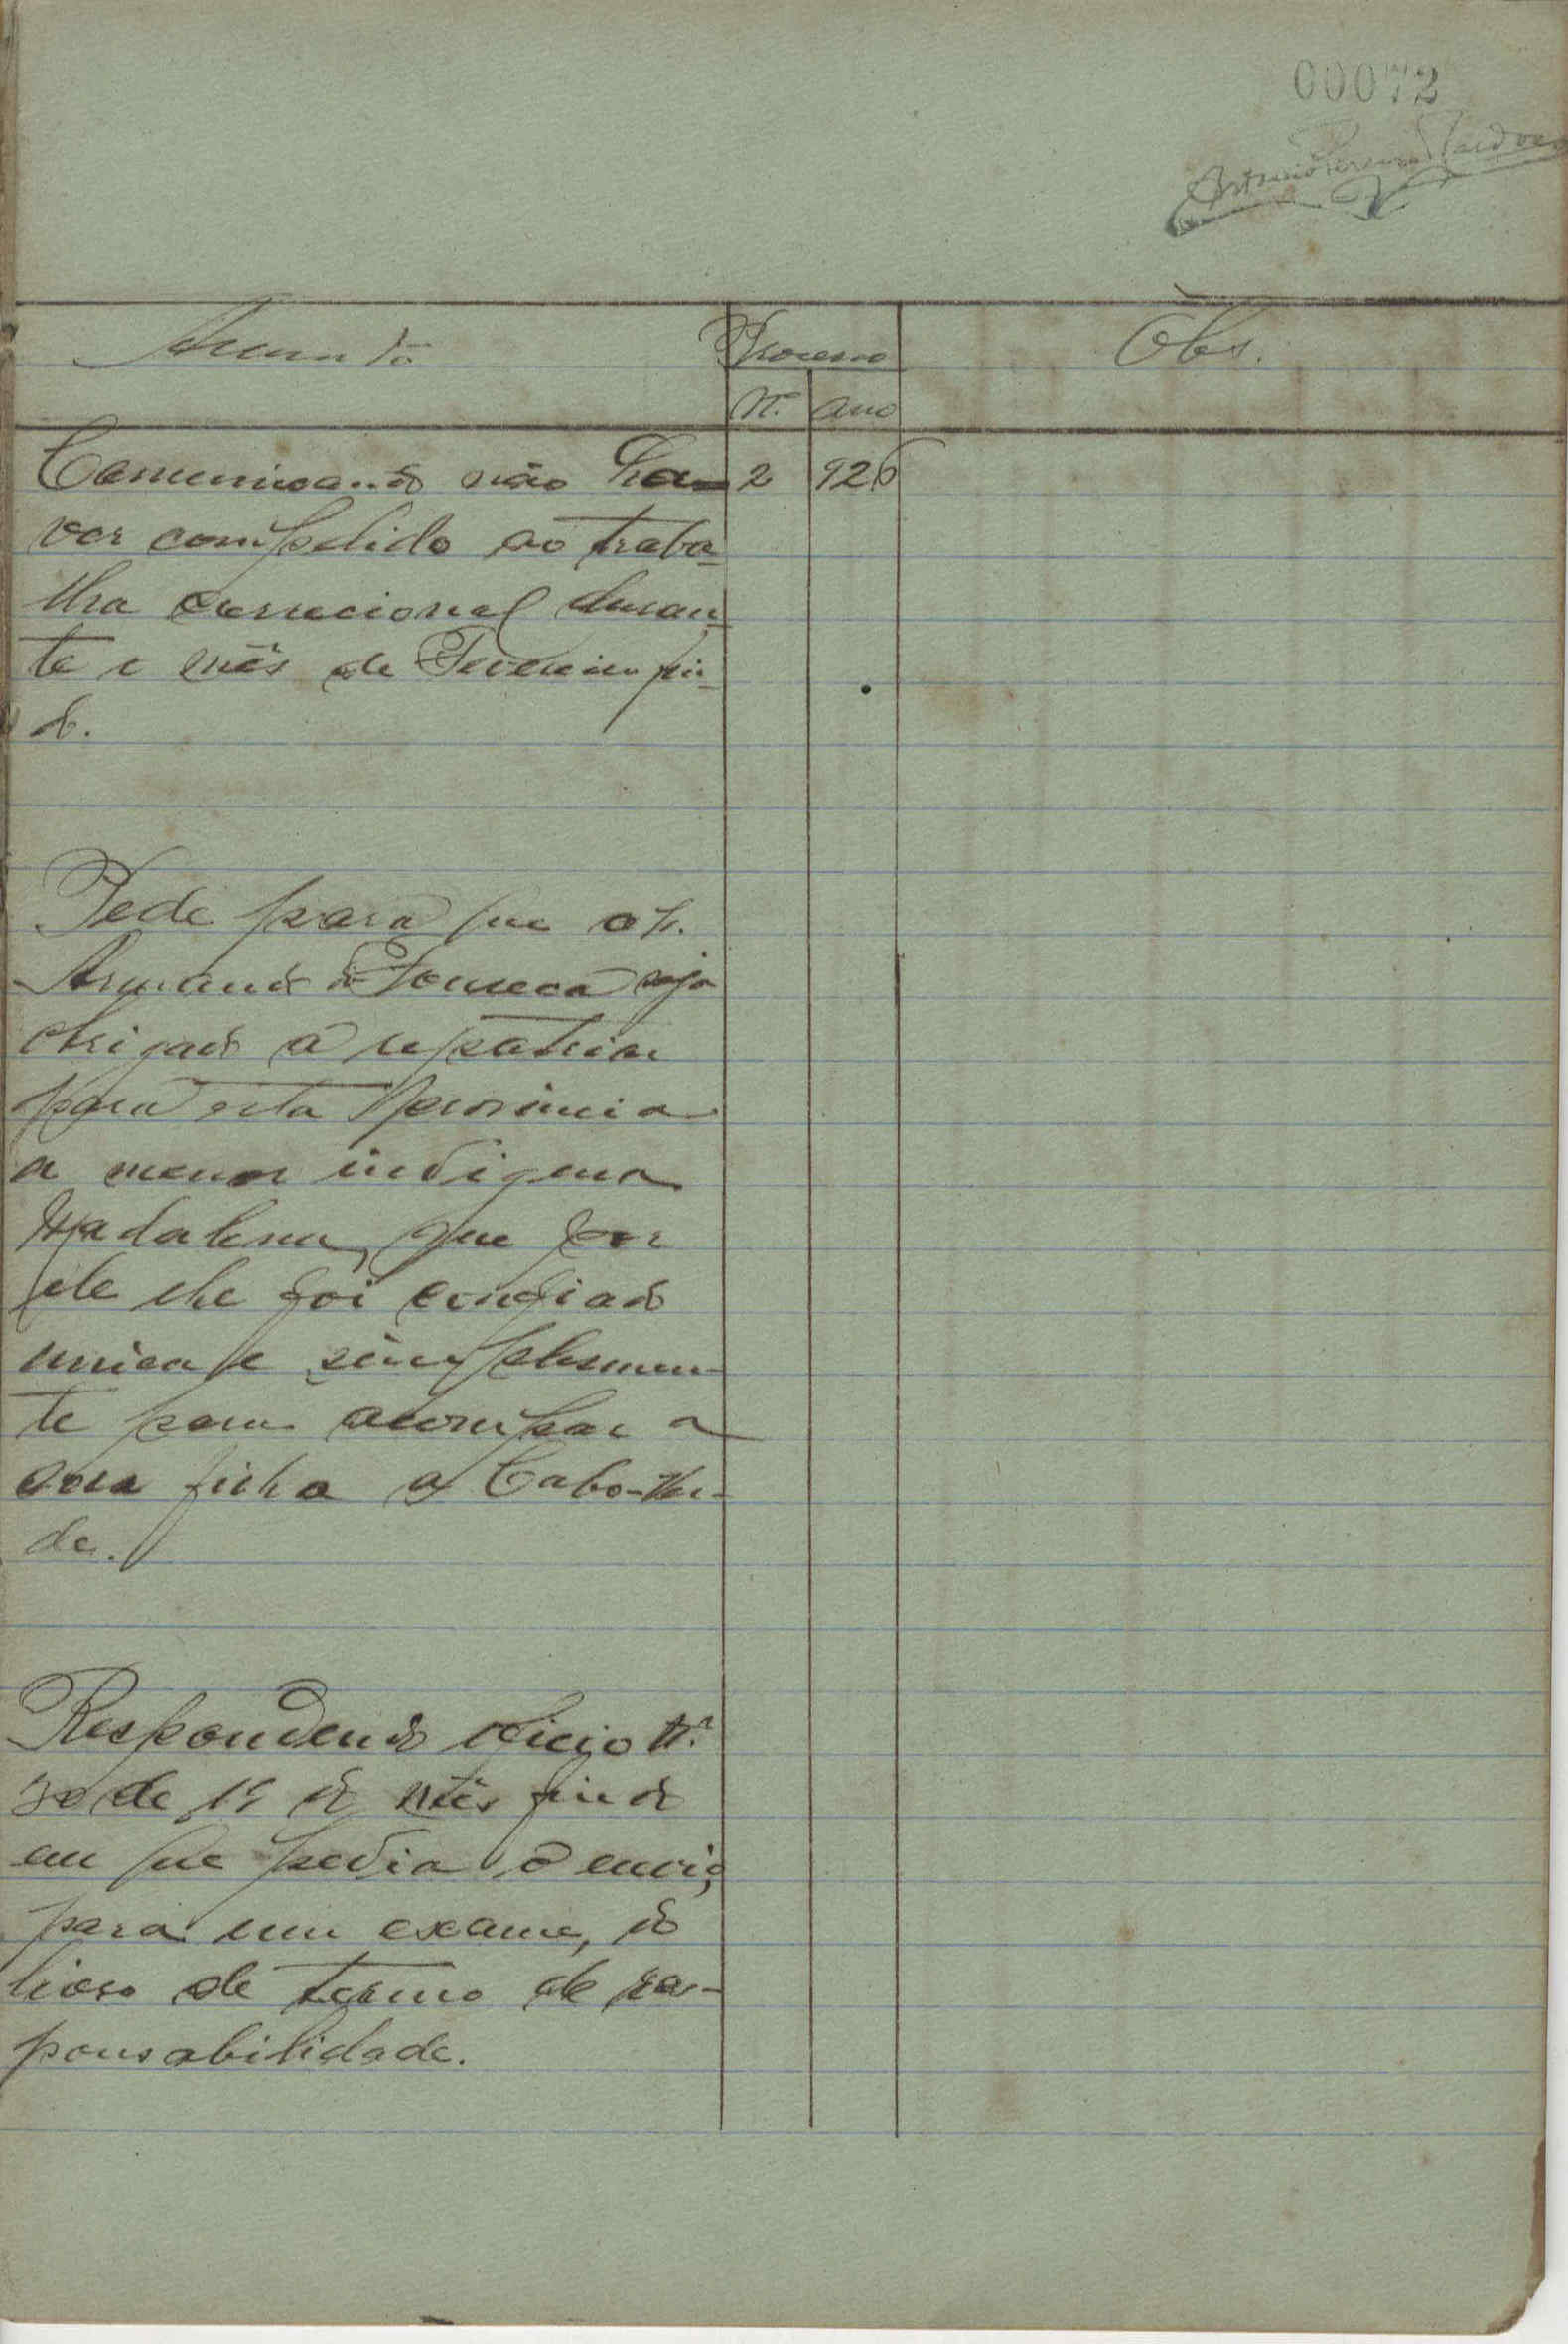 00072
Assunto Processo Obs.
N.º ano
Comunicando não ha- 2 926
ver compelido ao traba-
lho correcional duran-
te o mês de Fevereiro fin-
do.
Pede para que o sr.
Armando da Fonseca seja
obrigado a repatriar
para esta provincia
a menor indigena
Madalena, que por
ele lhe foi confiado
unica e simplesmen-
te para acompar a
sua filha a Cabo-Ver-
de.
Respondendo oficio N.º
de 15 do mês findo
em que pedia o envio,
para um exame, do
livro de termo de res-
ponsabilidade.